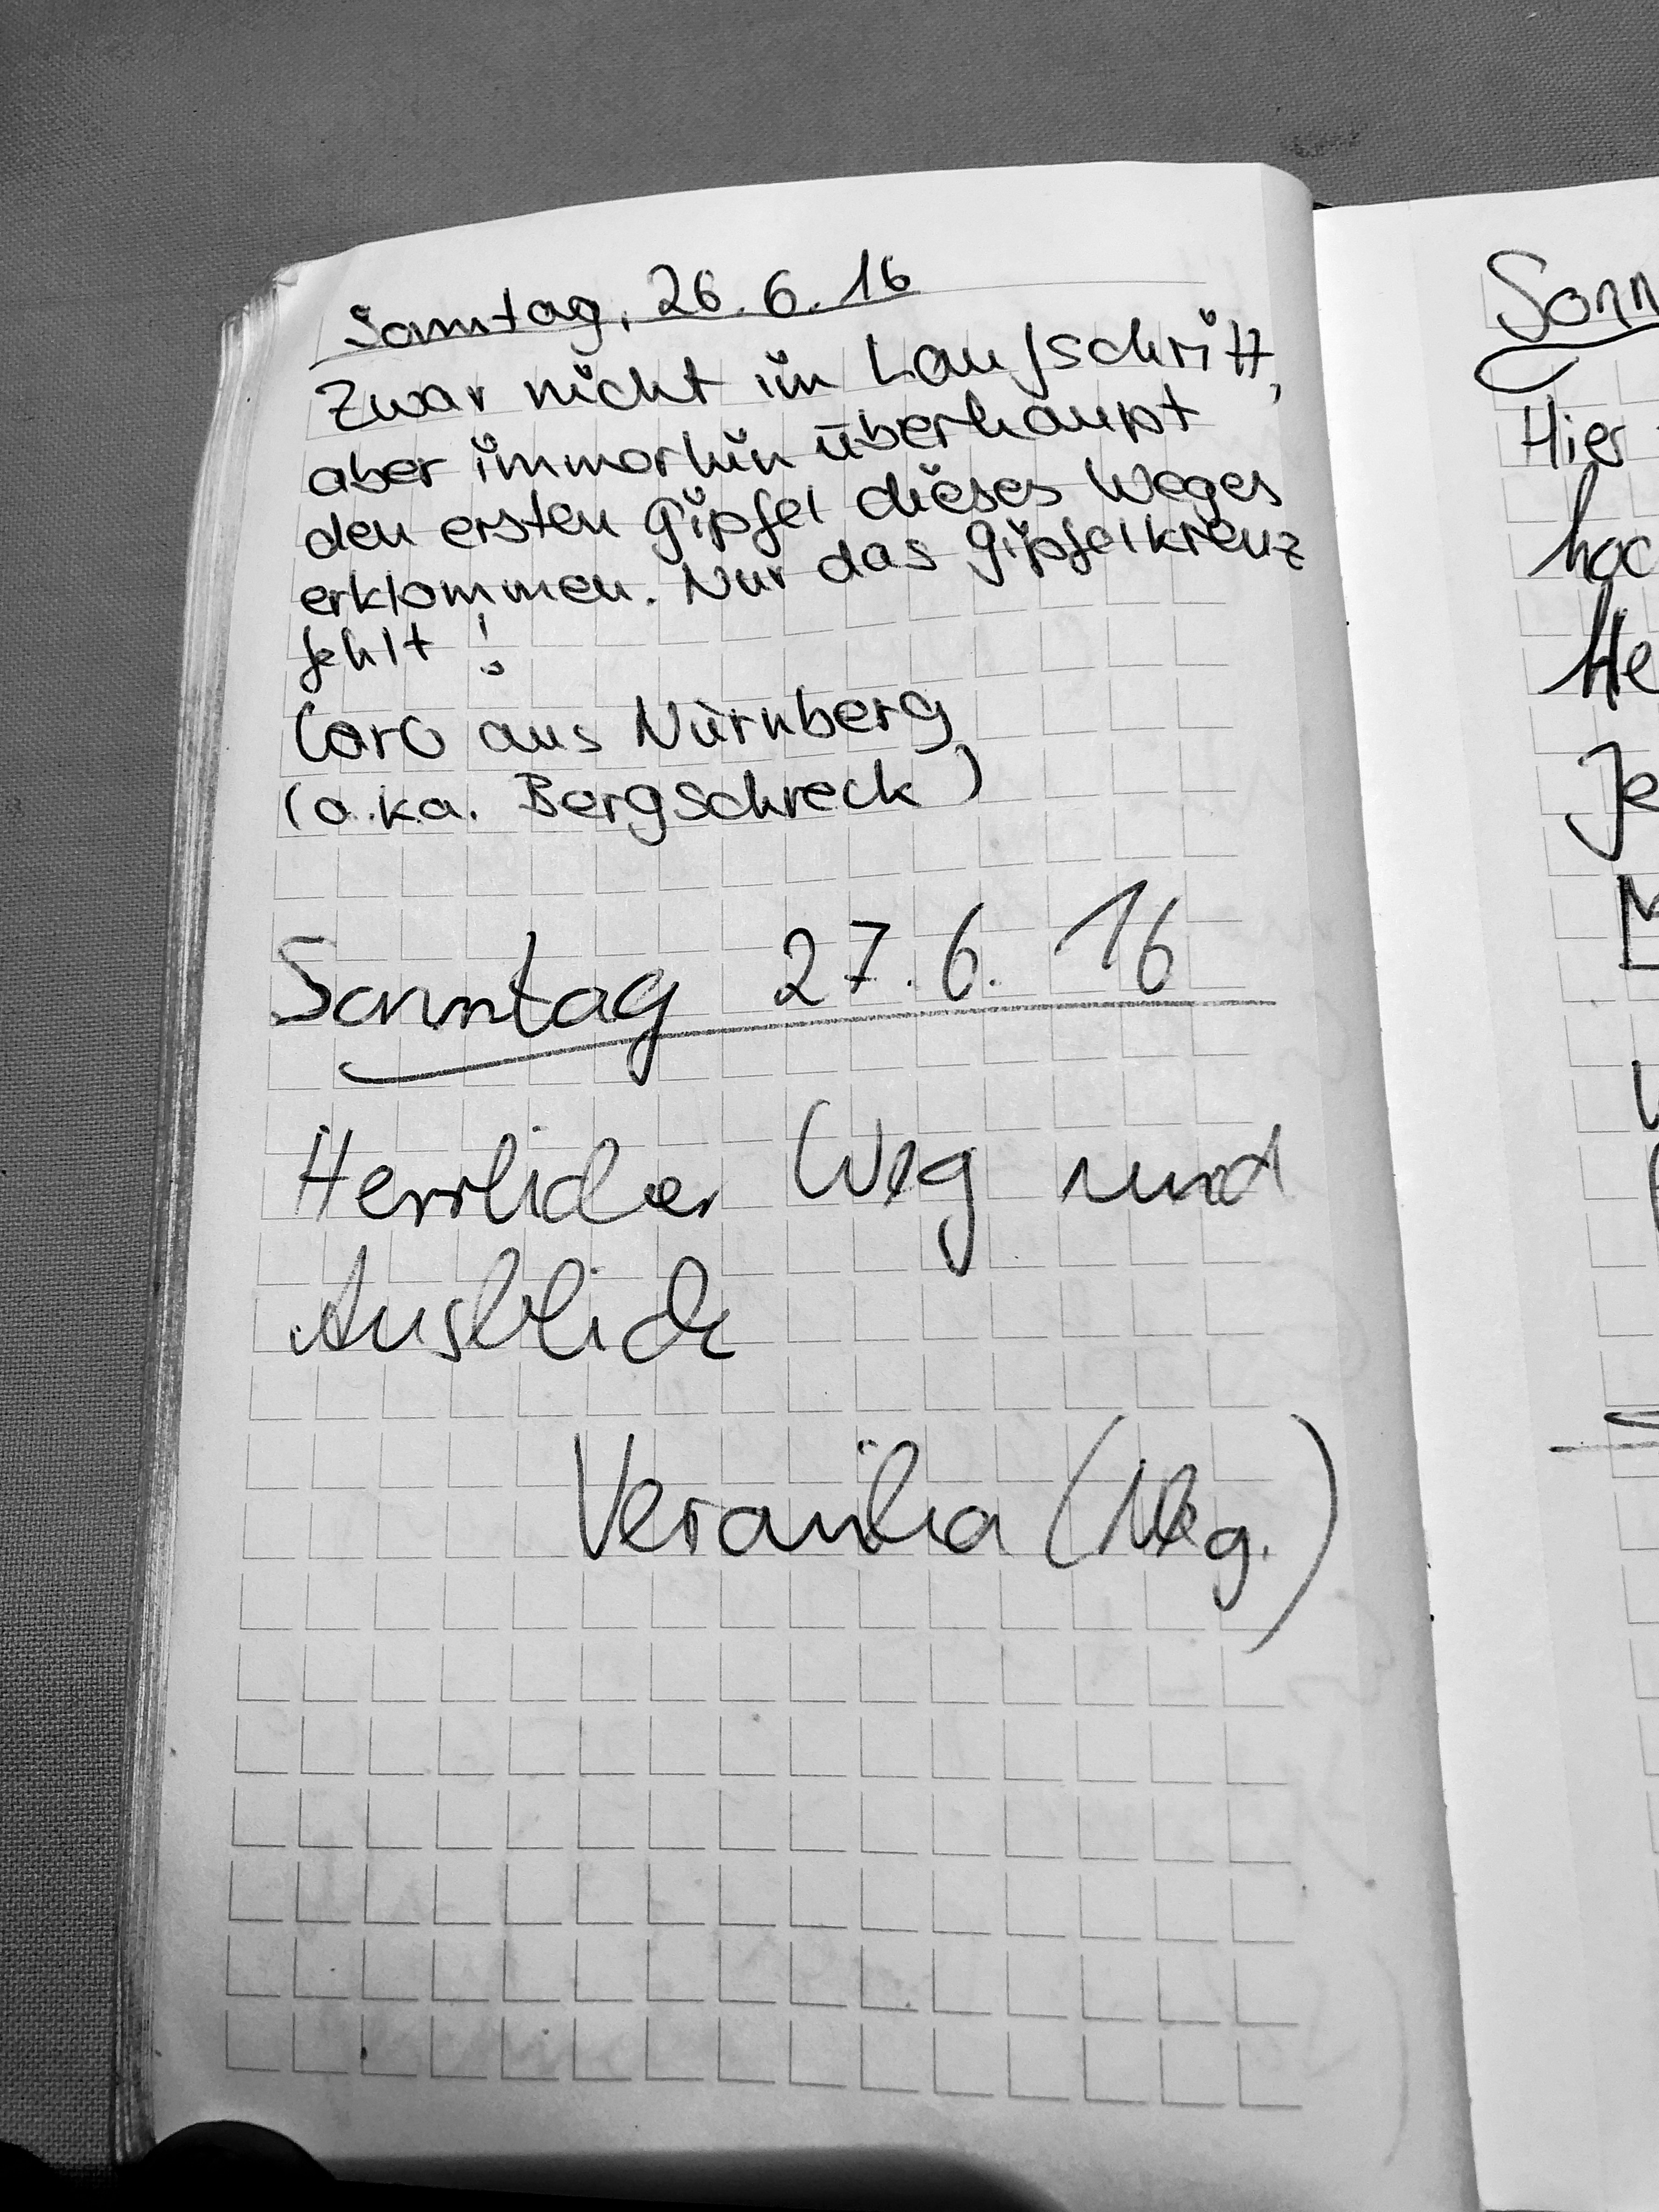 Sonntag, 26.6.16
Zwar nicht im Laufschritt,
aber immerhin überhaupt
den ersten Gipfel dieses Weges
erklommen. Nur das Gipfelkreuz
fehlt!
Caro aus Nürnberg
(a.k.a. Bergschreck)
Sonntag 27.6.16
Herrlicher Weg und
Ausblick
(Nbg.)
Sonn
Hier
hoc
He
Je